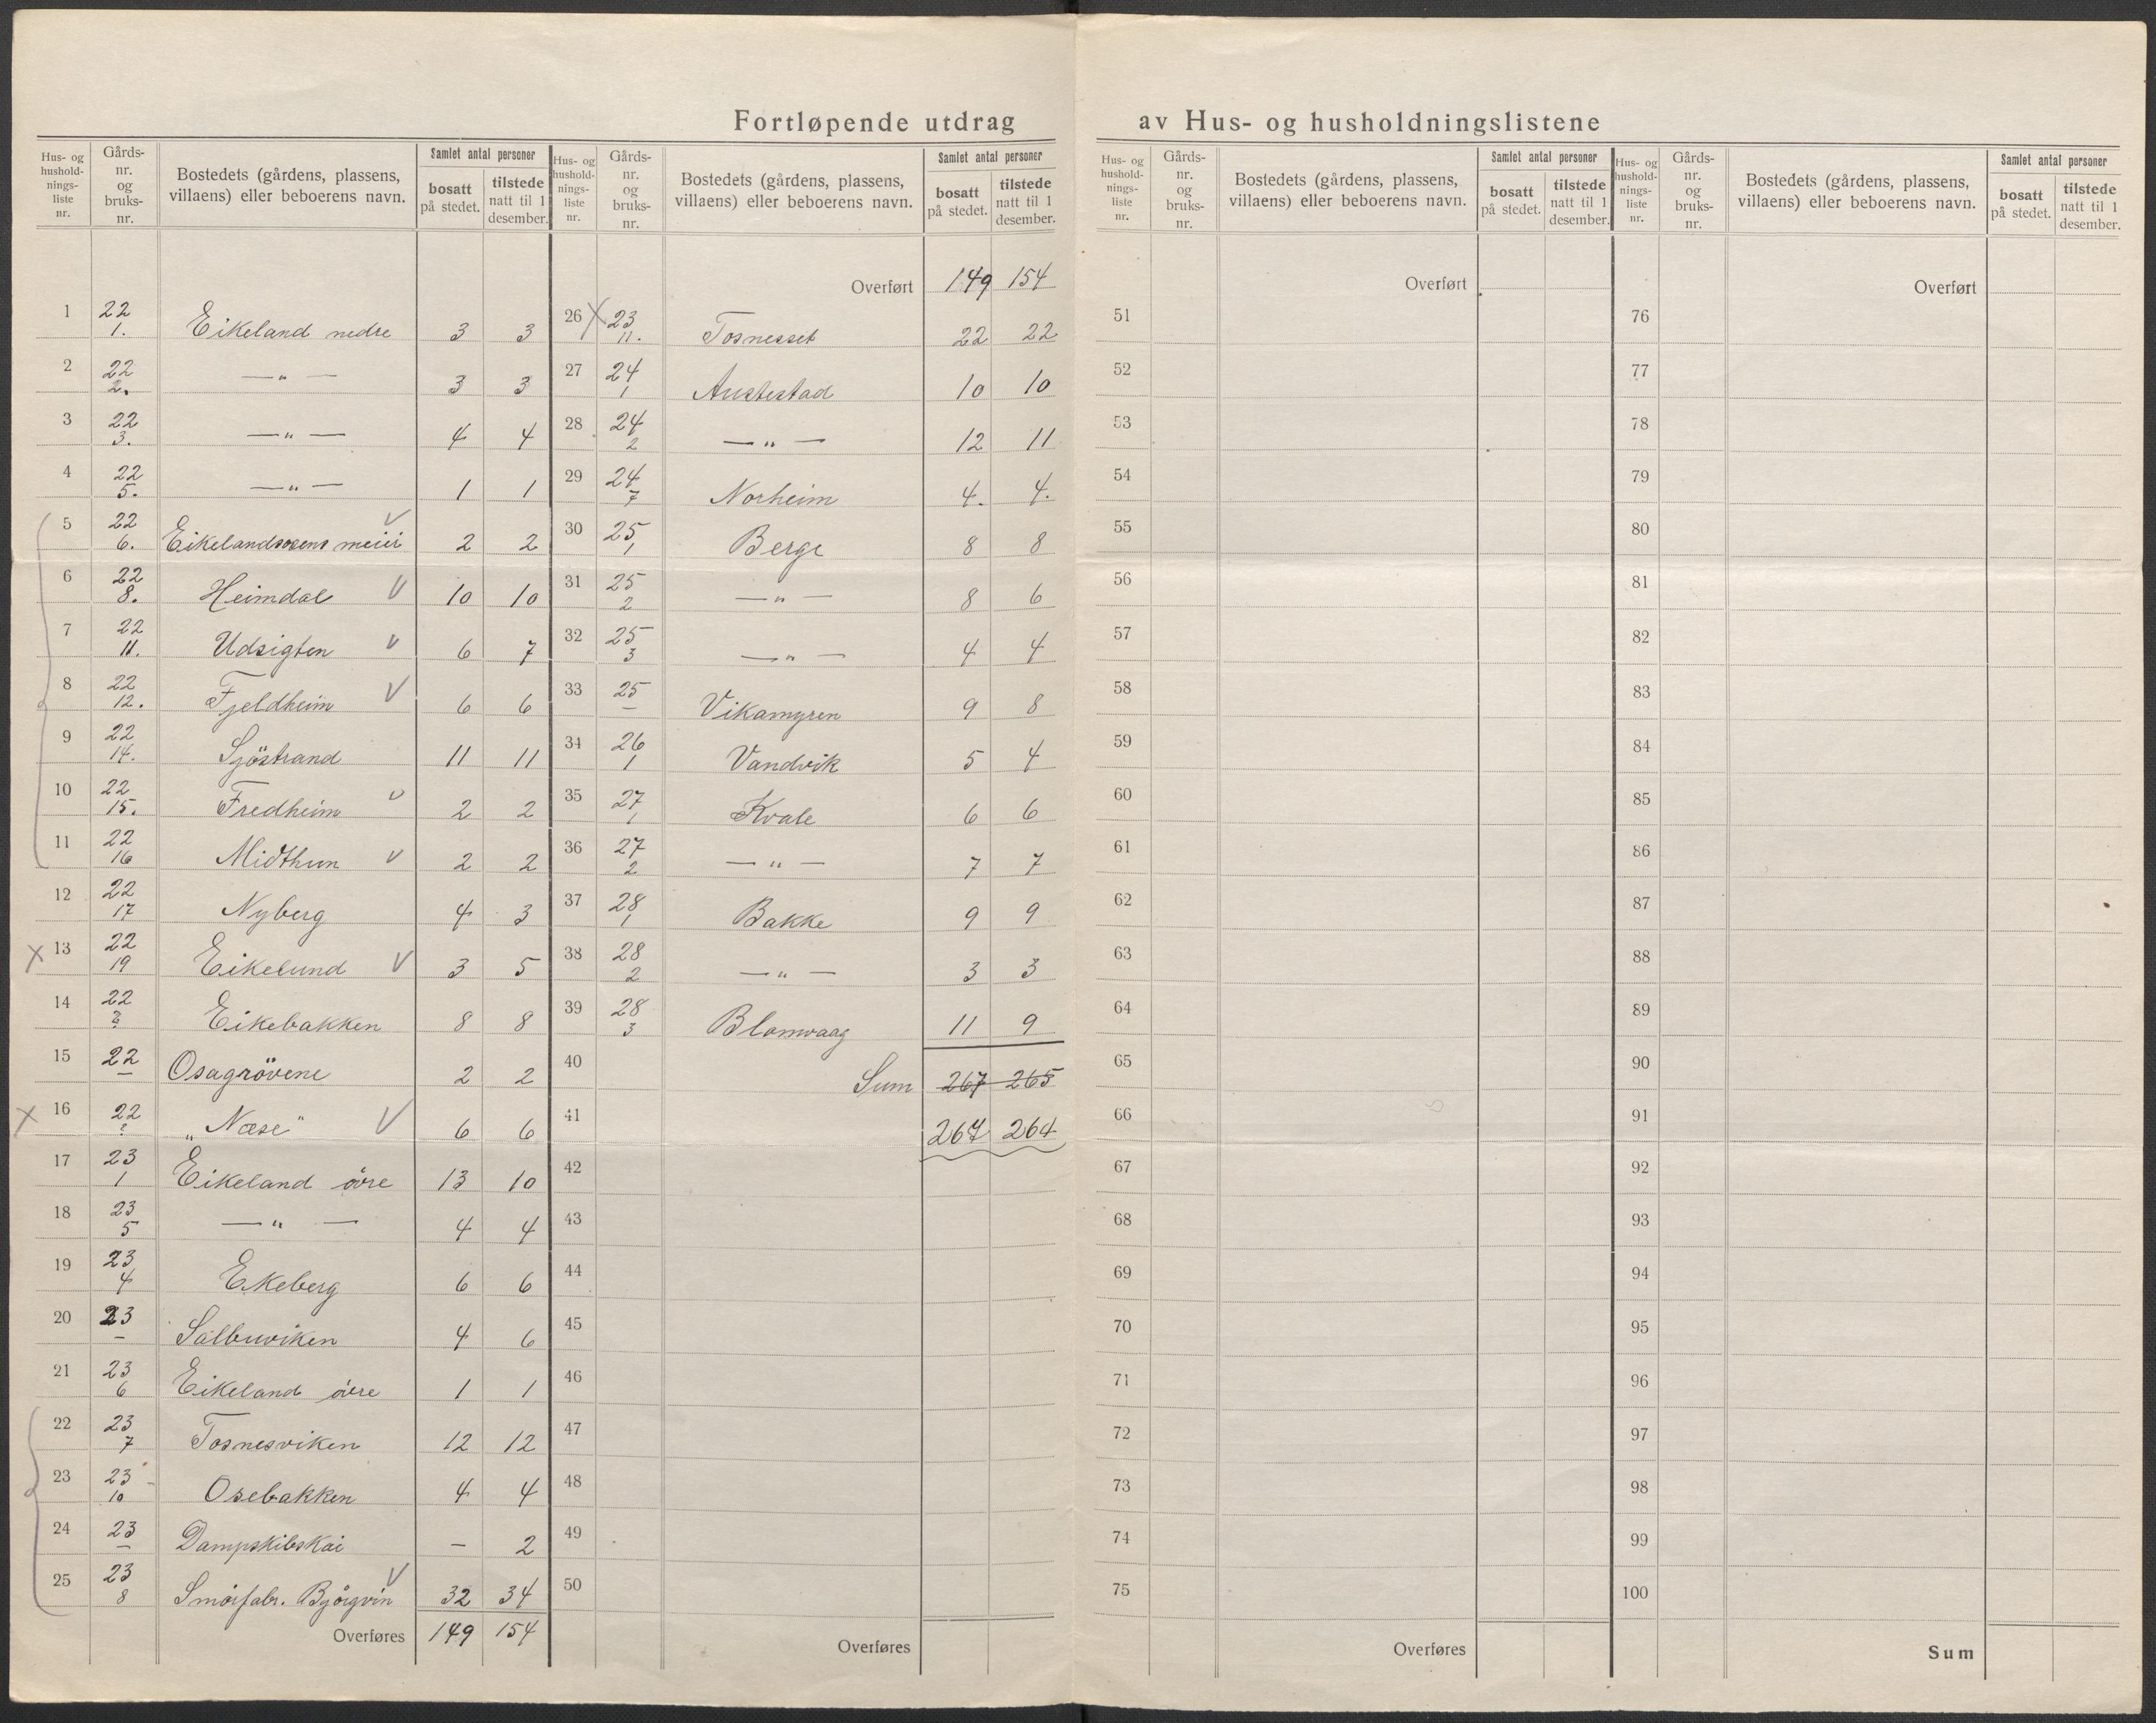 Fortløpende utdrag av Hus- og husholdningslistene
Hus- og hushold-nings-liste nr. Gårds-nr. og bruks-nr. Bostedets (gårdens, plassens, villaens) eller beboerens navn. Samlet antal personer bosatt på stedet. tilstede natt til 1 desember.
1 22 1. Eikeland nedre 3 3
2 22 2. —"— 3 3
3 22 3. —"— 4 4
4 22 5. —"— 1 1
5 22 6. Eikelandsosens meieri V 2 2
6 22 8. Heimdal V 10 10
7 22 11. Udsigten V 6 7
8 22 12. Fjeldheim V 6 6
9 22 14. Sjöstrand 11 11
10 22 15. Fredheim V 2 2
11 22 16 Midthun V 2 2
12 22 17 Nyberg 4 3
X 13 22 19 Eikelund V 3 5
14 22 ? Eikebakken 8 8
15 22 — Osagrövene 2 2
X 16 22 ? "Næse" V 6 6
17 23 1 Eikeland övre 13 10
18 23 5 —"— 4 4
19 23 4 Ekeberg 6 6
20 23 — Sælbuviken 4 6
21 23 6 Eikeland övre 1 1
22 23 7 Tosnesviken 12 12
23 23 10 Osebakken 4 4
24 23 — Dampskibskai — 2
25 23 8 Smörfabr. Björgvin V 32 34
Overføres 149 154
Hus- og hushold-nings-liste nr. Gårds-nr. og bruks-nr. Bostedets (gårdens, plassens, villaens) eller beboerens navn. Samlet antal personer bosatt på stedet. tilstede natt til 1 desember.
Overført 149 154
26 X 23 11. Tosnesset 22 22
27 24 1 Austestad 10 10
28 24 2 —"— 12 11
29 24 7 Norheim 4. 4.
30 25 1 Berge 8 8
31 25 2 —"— 8 6
32 25 3 —"— 4 4
33 25 — Vikamyren 9 8
34 26 1 Vandvik 5 4
35 27 1 Kvale 6 6
36 27 2 —"— 7 7
37 28 1 Bakke 9 9
38 28 2 —"— 3 3
39 28 3 Blomvaag 11 9
40 Sum 267 265
41 267 264
42
43
44
45
46
47
48
49
50
Overføres
Hus- og hushold-nings-liste nr. Gårds-nr. og bruks-nr. Bostedets (gårdens, plassens, villaens) eller beboerens navn. Samlet antal personer bosatt på stedet. tilstede natt til 1 desember.
Overført
51
52
53
54
55
56
57
58
59
60
61
62
63
64
65
66
67
68
69
70
71
72
73
74
75
Overføres
Hus- og hushold-nings-liste nr. Gårds-nr. og bruks-nr. Bostedets (gårdens, plassens, villaens) eller beboerens navn. Samlet antal personer bosatt på stedet. tilstede natt til 1 desember.
Overført
76
77
78
79
80
81
82
83
84
85
86
87
88
89
90
91
92
93
94
95
96
97
98
99
100
Sum